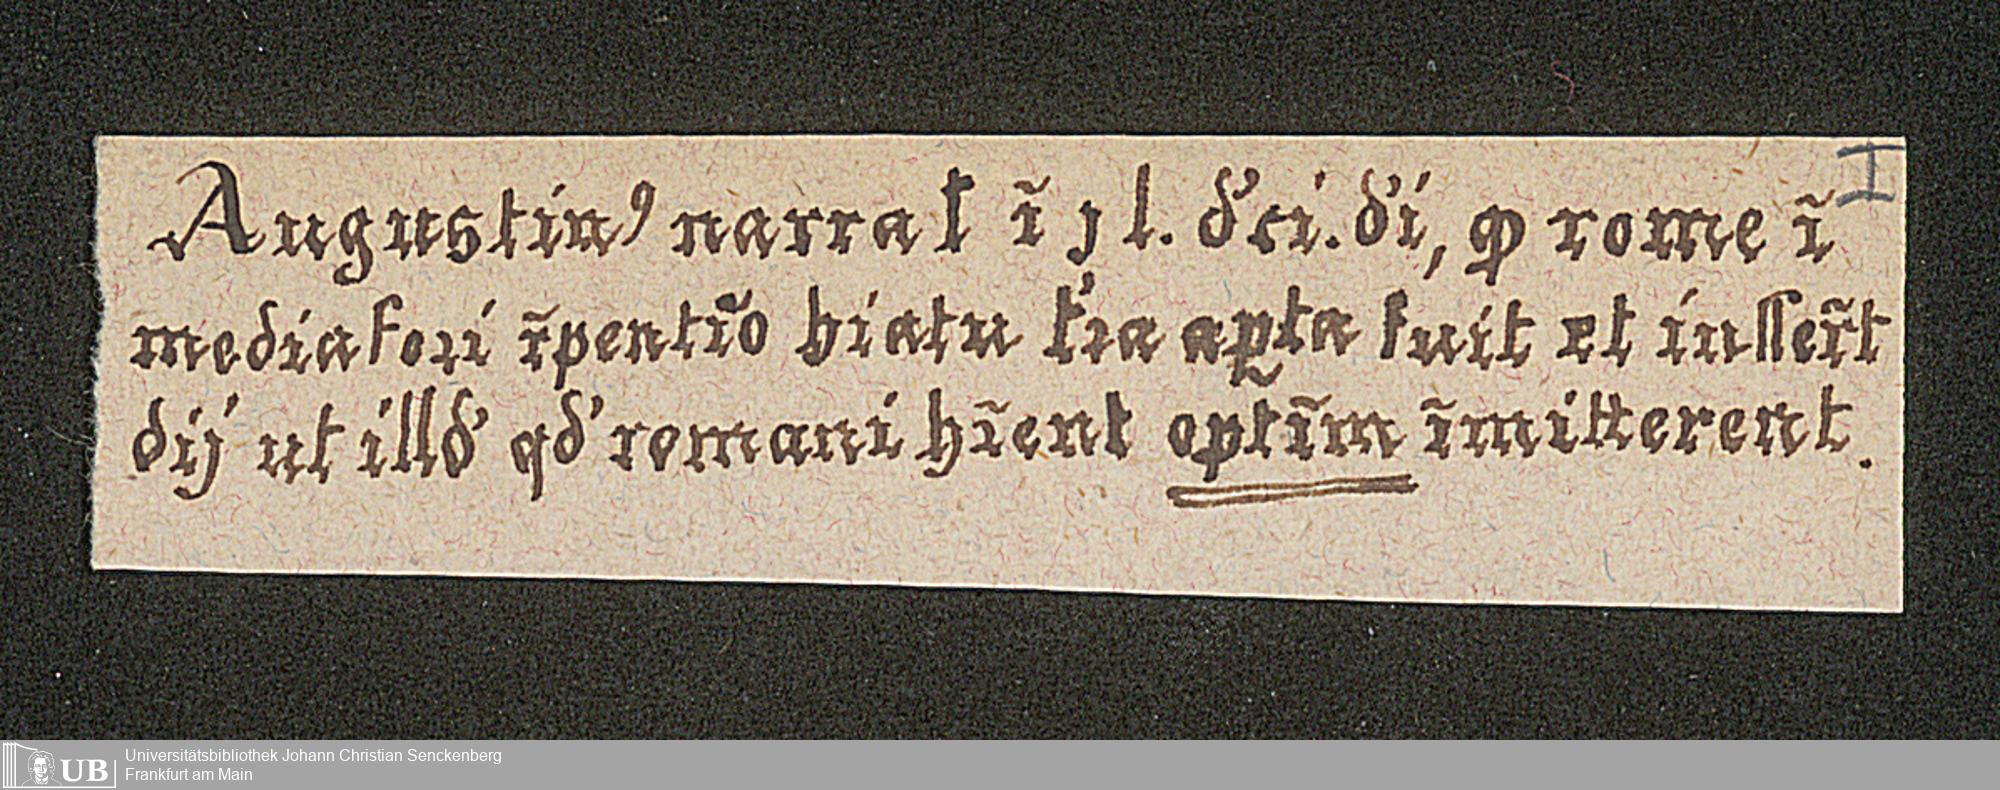 I
Augustinꝰ narrat ĩ j l. d'ci. d'i, ꝙ rome ĩ
mediatori ĩpentĩo hiatu t'ra aꝑta fuit et insserũt
dij ut illd' qd' romani hĩent optĩm ĩmitterent.
Universitätsbibliothek Johann Christian Senckenberg
Frankfurt am Main
UB